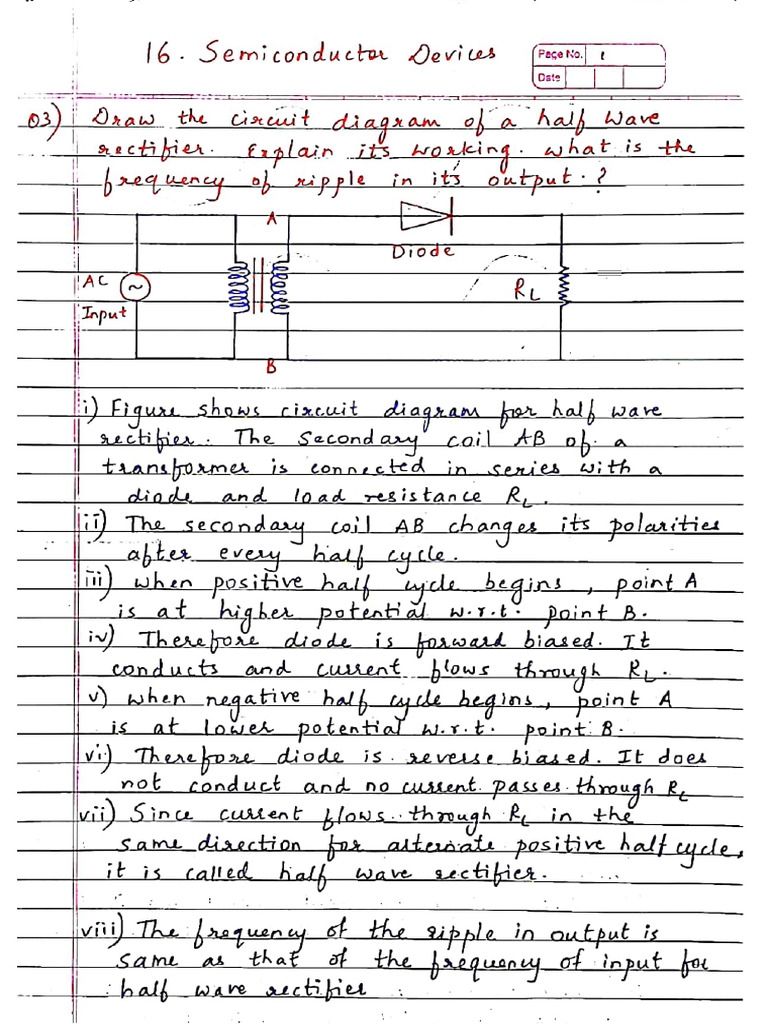 16. Semiconductor Devices
Page No. 1
Date
Q3) Draw the circuit diagram of a half wave
rectifier. Explain its working. what is the
frequency of ripple in its output.?
A
Diode
AC
Input
RL
B
i) Figure shows circuit diagram for half wave
rectifier. The secondary coil AB of a
transformer is connected in series with a
diode and load resistance RL.
ii) The secondary coil AB changes its polarities
after every half cycle.
iii) when positive half cycle begins, point A
is at higher potential w.r.t. point B.
iv) Therefore diode is forward biased. It
conducts and current flows through RL.
v) when negative half cycle begins, point A
is at lower potential w.r.t. point B.
vi) Therefore diode is reverse biased. It does
not conduct and no current passes through RL
vii) Since current flows through RL in the
same direction for alternate positive half cycle,
it is called half wave rectifier.
viii) The frequency of the ripple in output is
same as that of the frequency of input for
half wave rectifier